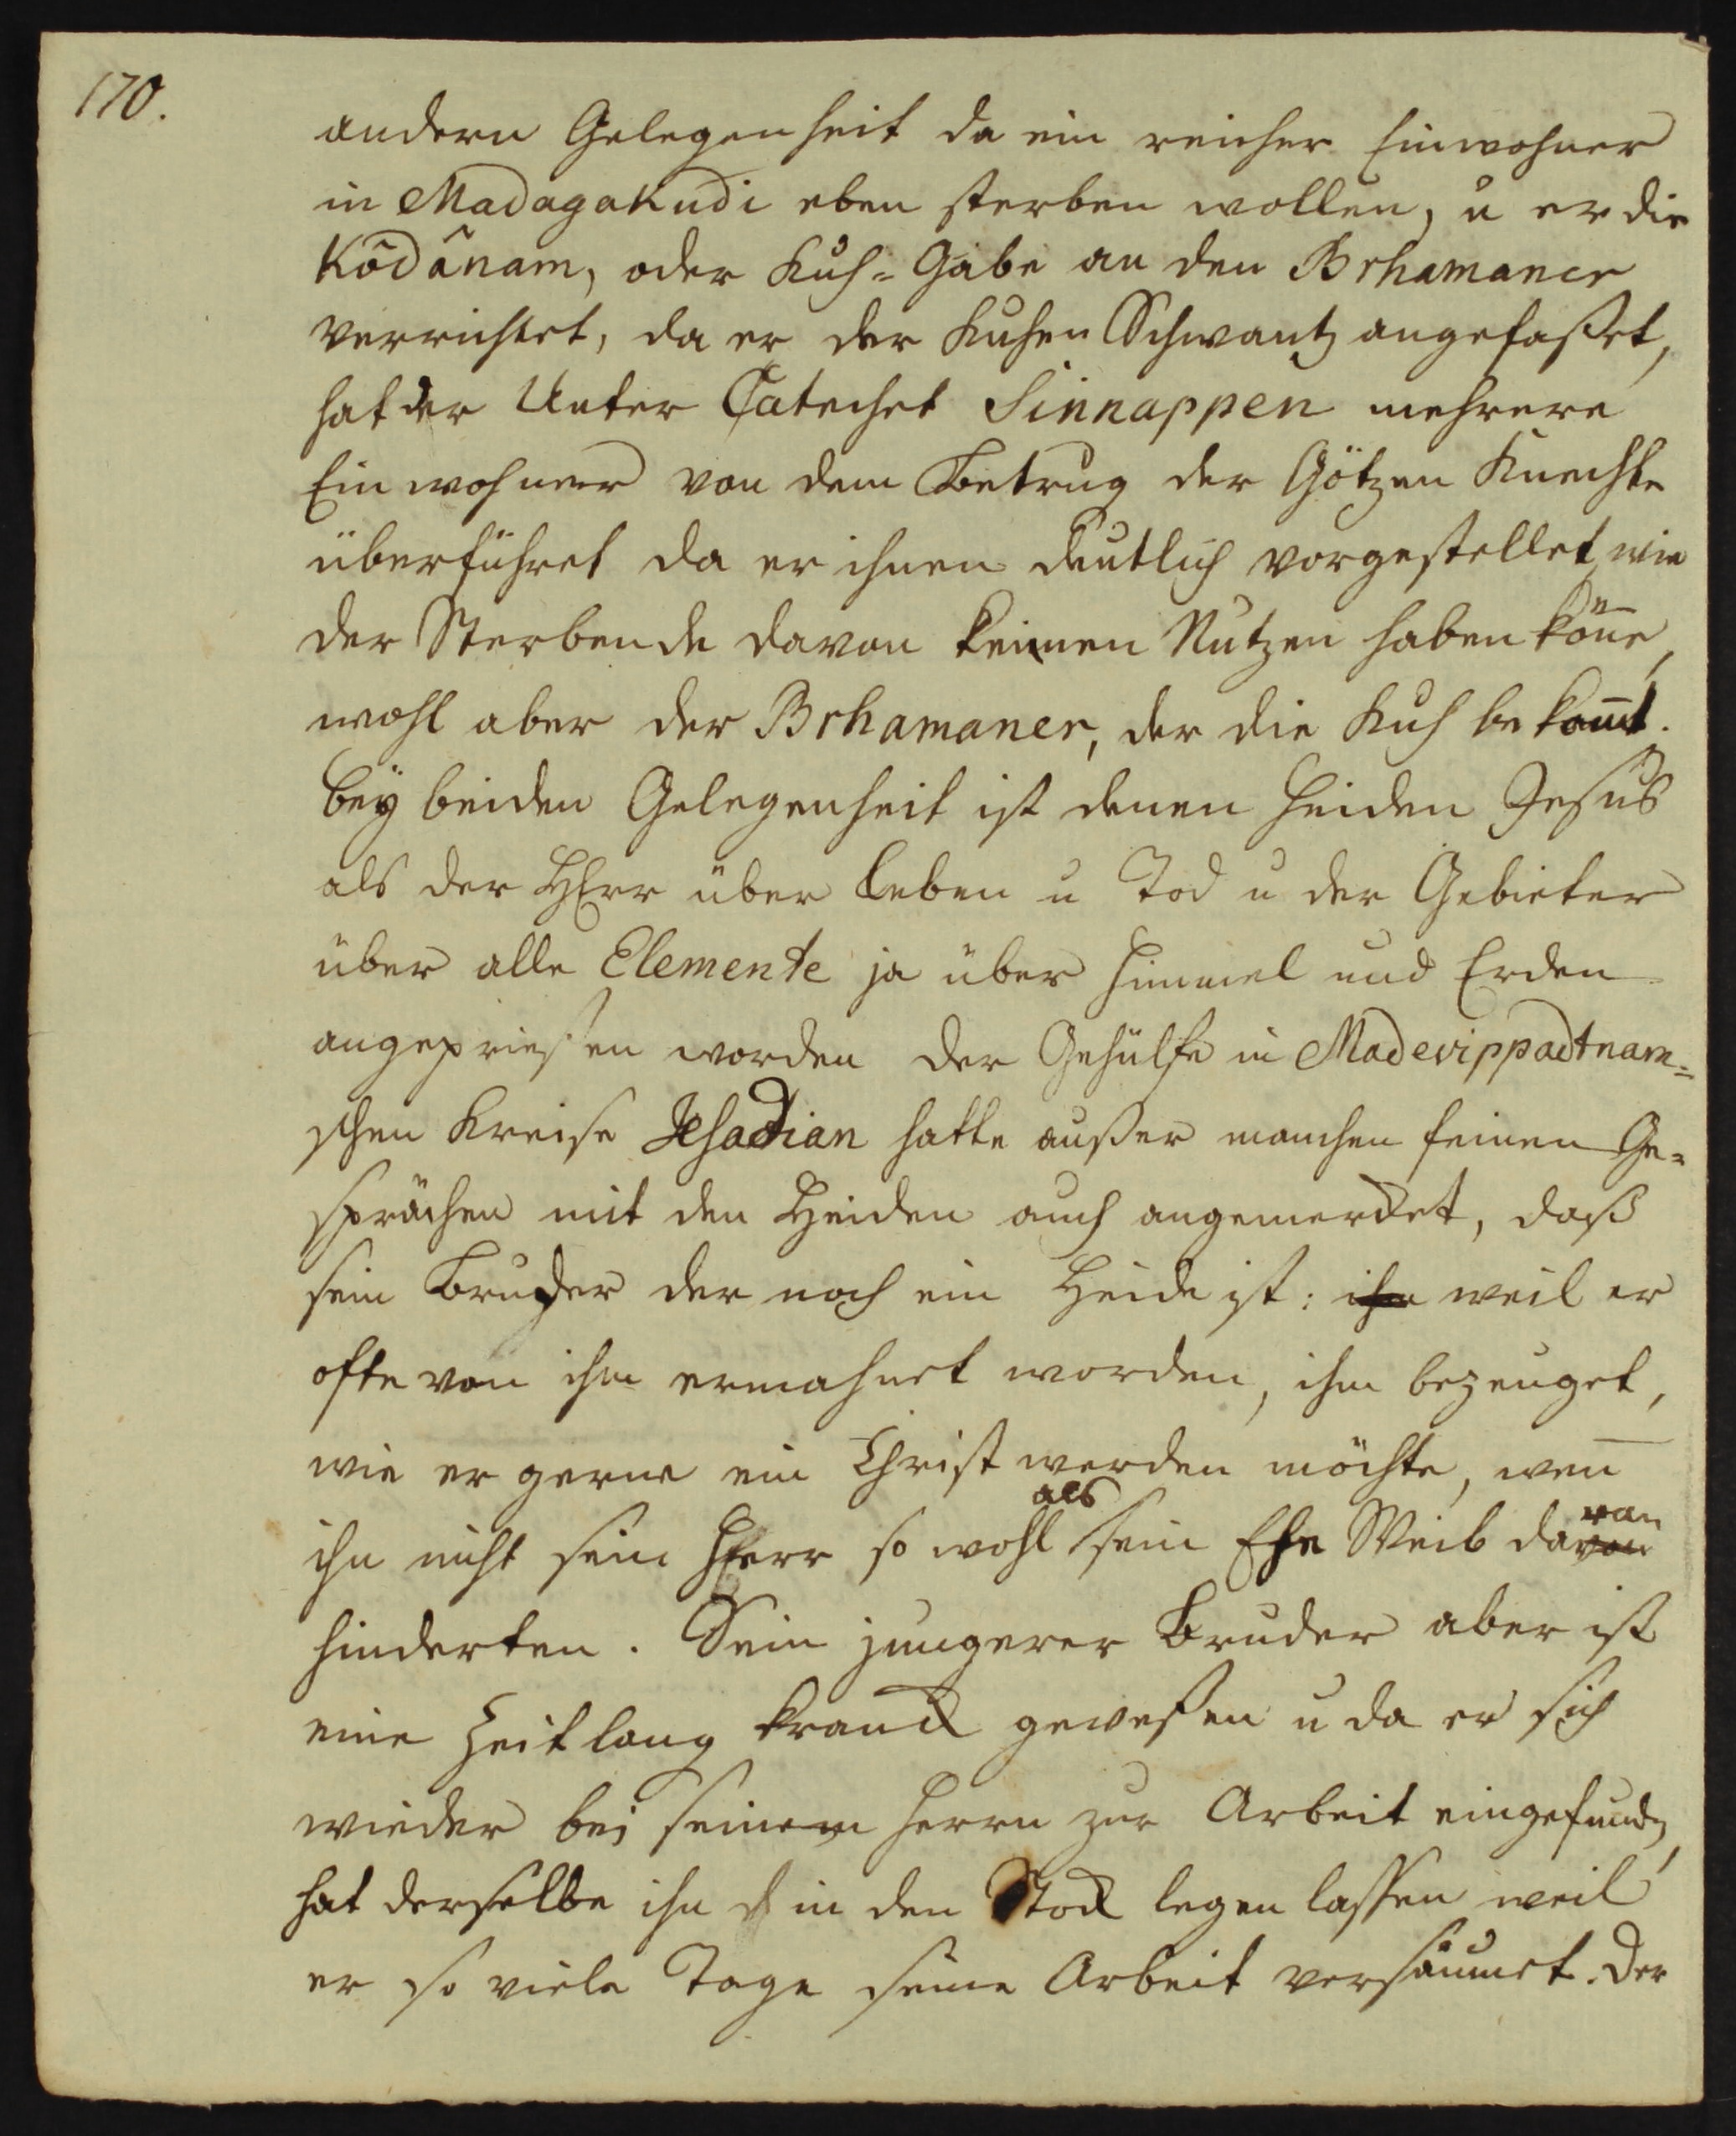 170.
andern Gelegenheit da ein reicher Einwohner
in Madagakudi eben sterben wollen, u er die
Kôdânam, oder Kuh-Gabe an den Brhamaner
verrichtet, da er der Kuhen Schwantz angefaßet,
hat der Unter Catechet Sinnappen mehrere
Einwohner von dem Betrug der Götzen Knechte
überführet da er ihnen deutlich vorgestellet, wie
der Sterbende davon keinen Nutzen haben köñe,
wohl aber der Brhamaner, der die Kuh bekom̃t.
bey beiden Gelegenheit ist denen Heiden Jesus
als der HErr über Leben u Tod u der Gebieter
über alle Elemente ja über Himmel und Erden
angepriesen worden der Gehülfe in Madevippadtnam-
schen Kreise Jesadian hatte außer manchen feinen Ge-
sprächen mit den Heiden auch angemercket, daß
sein Bruder der noch ein Heide ist: ihn weil er
ofte von ihm ermahnet worden, ihm bezeuget,
wie er gerne ein Christ werden möchte, weñ
ihn nicht sein Herr so wohl als sein Ehe Weib davon ran
hinderten. Sein jungerer Bruder aber ist
eine Zeitlang kranck gewesen u da er sich
wieder bei seinem Herrn zur Arbeit eingefunden,
hat derselbe ihn in den Stock legen lassen weil
er so viele Tage seine Arbeit versäumet. Der